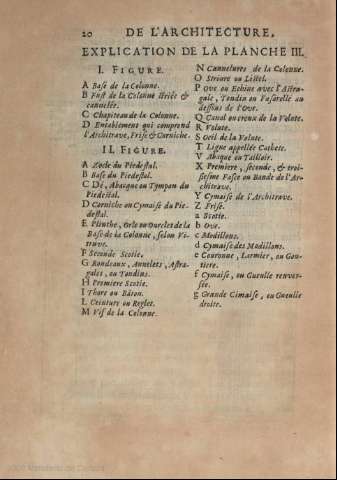 20 DE L'ARCHITECTURE.
EXPLICATION DE LA PLANCHE III.
I. FIGURE.
A Base de la Colonne.
B Fust de la Colonne striée &
canuelée.
C Chapiteau de la Colonne.
D Entablement qui comprend
l'Architrave, Frise & Corniche.
II. FIGURE.
A Zocle du Piedestal.
B Base du Piedestal.
C Dé, Abaque ou Tympan du
Piedestal.
D Corniche ou Cymaise du Pie-
destal.
E Plinthe, Orle ou Ourlet de la
Base de la Colonne, selon Vi-
truve.
F Seconde Scotie.
G Rondeaux, Annelets, Astra-
gales, ou Tondins.
H Premiere Scotie.
I Thore ou Bâton.
L Ceinture ou Reglet.
M Vif de la Colonne.
N Cannelures de la Colonne.
O Striure ou Listel.
P Ove ou Echine avec l'Astra-
gale, Tondin ou Fusarolle au
dessous de l'Ove.
Q Canal ou creux de la Volute.
R Volute.
S Oeil de la Volute.
T Ligne appellée Cathete.
V Abaque ou Tailloir.
X Premiere, seconde, & troi-
siesme Face ou Bande de l'Ar-
chitrave.
Y Cymaise de l'Architrave.
Z Frise.
a Scotie.
b Ove.
c Modillons.
d Cymaise des Modillons.
e Couronne, Larmier, ou Gou-
tiere.
f Cymaise, ou Gueulle renver-
sée.
g Grande Cimaise, ou Gueulle
droite.